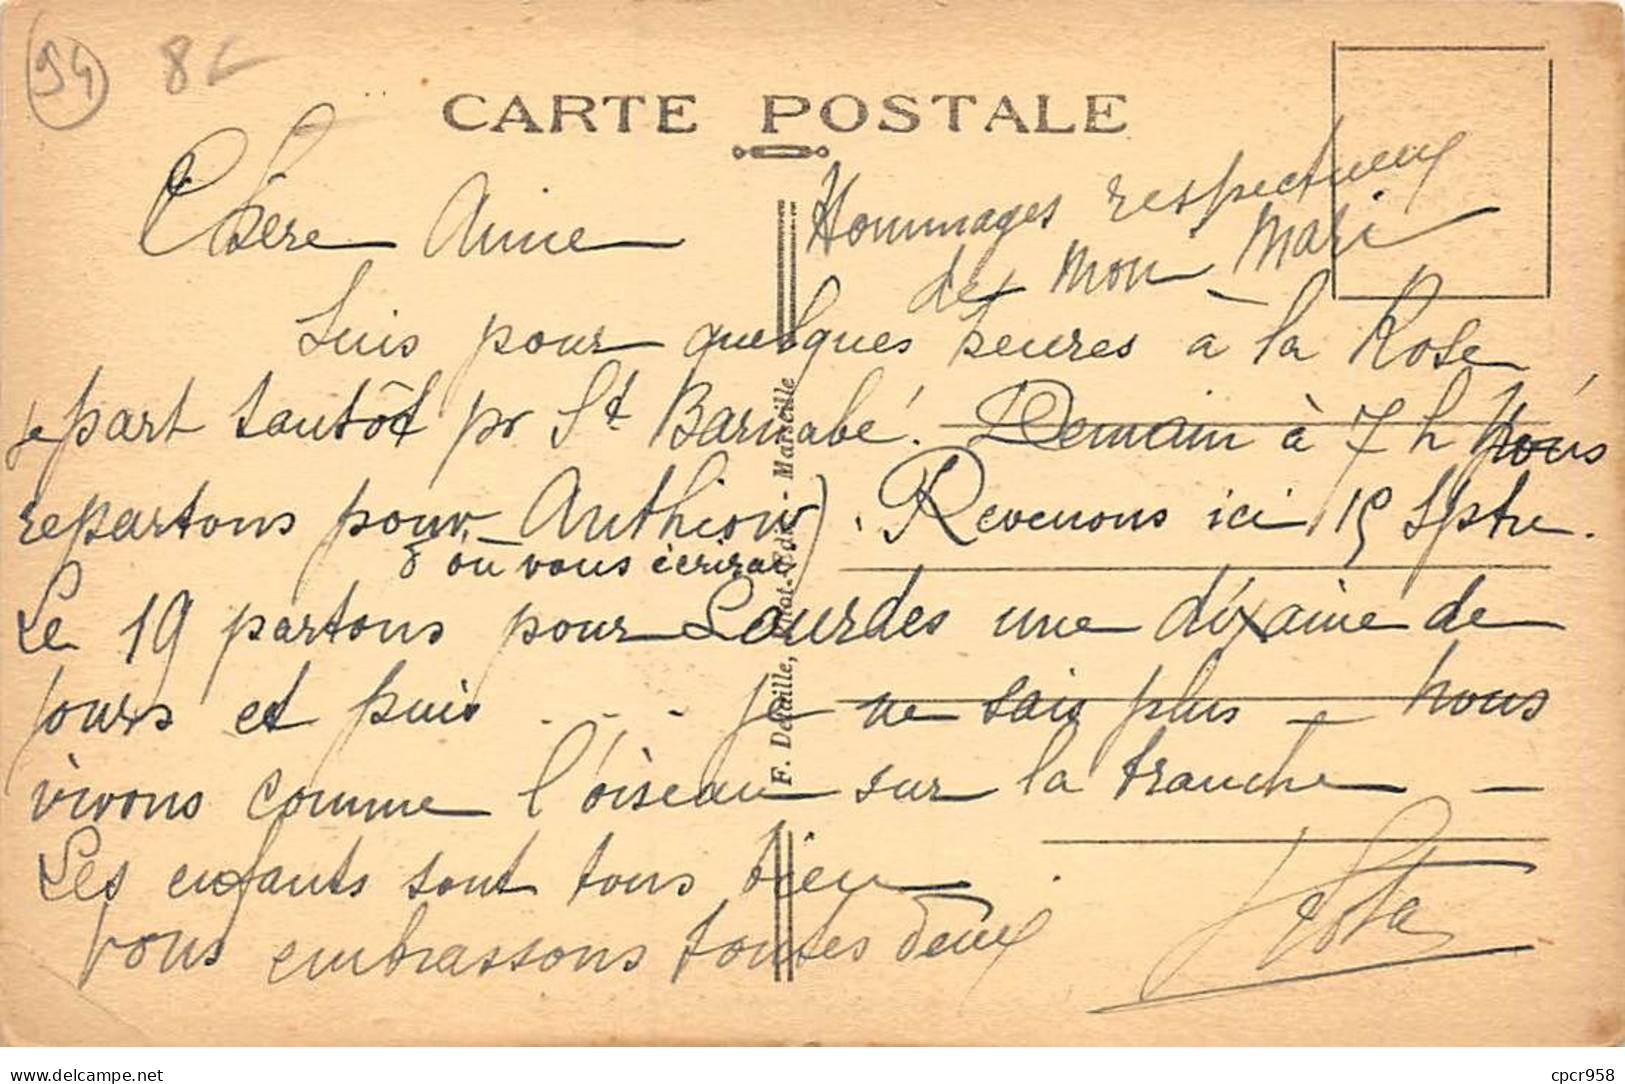 94 8
CARTE POSTALE
Chère Amie
Hommages respectueux
de mon Mari
Suis pour quelques heures a la Rose
je part tantôt pr St Barnabé. Demain à 7 h nous
repartons pour Anthion). Revenons ici 15 Sptre.
où vous écrirai
Le 19 partons pour Lourdes une dixaine de
jours et puis . . . je ne sais plus — nous
vivons comme l'oiseau sur la branche —
Les enfants sont tous bien.
vous embrassons toutes deux
F. Detaille, Edit - Marseille
cpcr958